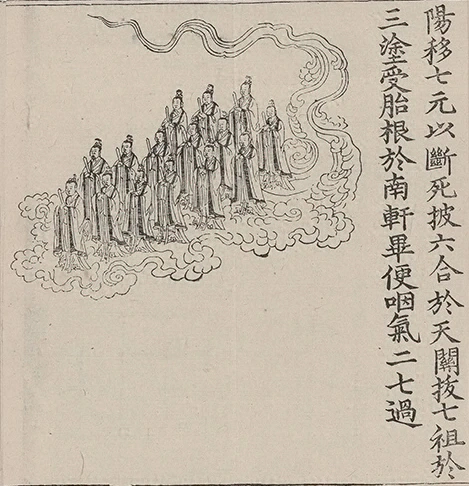 陽移七元以斷死披六合於天關拔七祖於
三塗受胎根於南軒畢便咽氣二七過